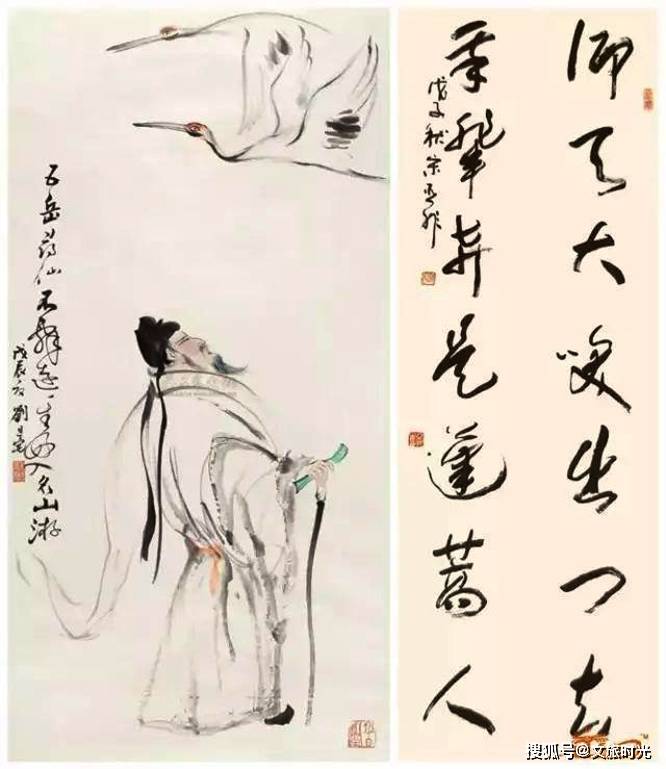 仰天大笑出门去
我辈岂是蓬蒿人
戊子秋
五岳尋仙不辭遠一生好入名山游
戊辰 劉旦宅
搜狐号@文旅时光